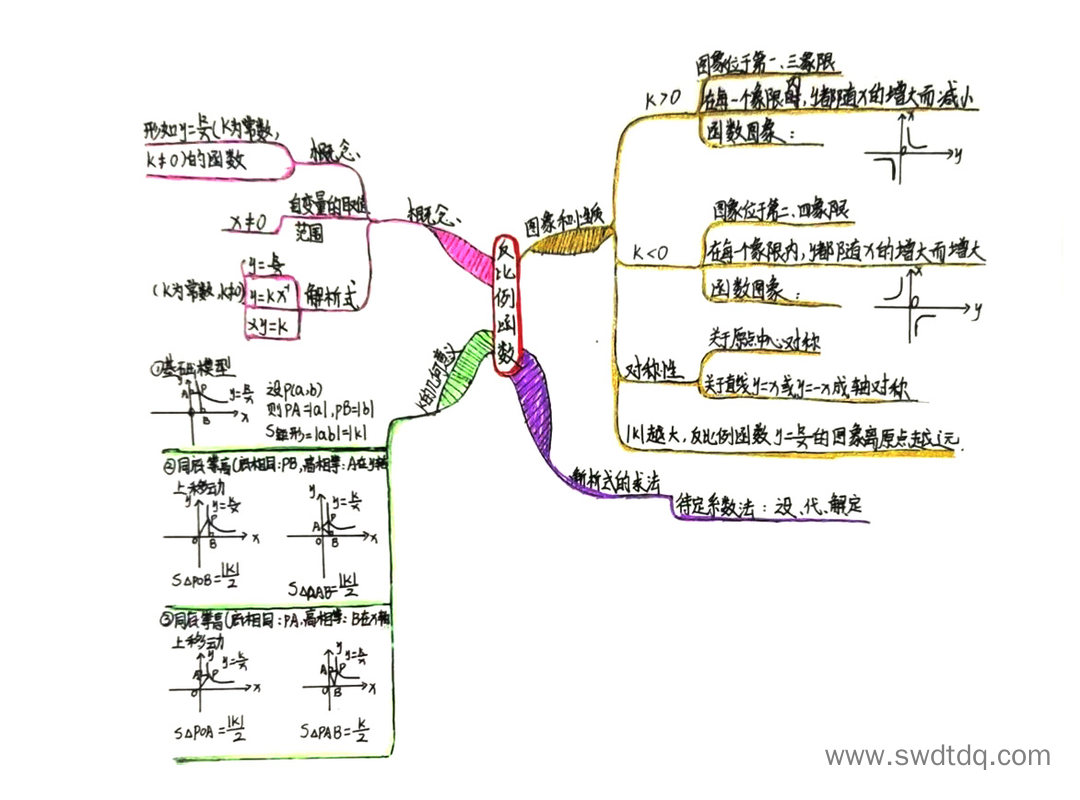 反比例函数
概念
概念
形如y=k/x(k为常数,
k≠0)的函数
自变量的取值
范围
x≠0
解析式
(k为常数,k≠0)
y=k/x
y=kx⁻¹
xy=k
图象和性质
k>0
图象位于第一、三象限
在每一个象限内,y都随x的增大而减小
函数图象:
x
y
k<0
图象位于第二、四象限
在每个象限内,y都随x的增大而增大
函数图象:
x
O
y
对称性
关于原点中心对称
关于直线y=x或y=-x成轴对称
|k|越大,反比例函数y=k/x的图象离原点越远
解析式的求法
待定系数法:设、代、解定
k的几何意义
①基础模型
y
A
P
B
x
y=k/x
设P(a,b)
则PA=|a|,PB=|b|
S矩形=|ab|=|k|
②同底等高(底相同:PB,高相等:A在y轴
上移动
y
y=k/x
P
O
B
x
S△POB=|k|/2
y
y=k/x
A
P
O
B
x
S△PAB=|k|/2
③同底等高(底相同:PA,高相等:B在x轴
上移动
y
y=k/x
A
P
O
x
S△POA=|k|/2
y
y=k/x
A
P
O
B
x
S△PAB=k/2
www.swdtdq.com